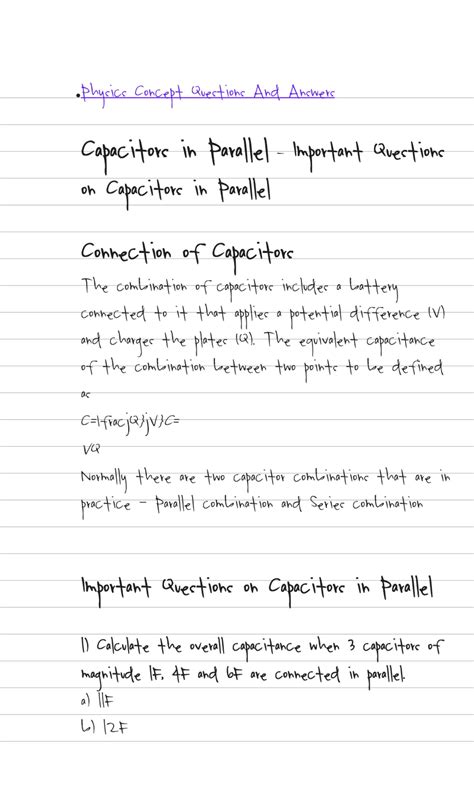 •Physics Concept Questions And Answers
Capacitors in Parallel - Important Questions
on Capacitors in Parallel
Connection of Capacitors
The combination of capacitors includes a battery
connected to it that applies a potential difference (V)
and charges the plates (Q). The equivalent capacitance
of the combination between two points to be defined
as
C=\frac{Q}{V}C=
VQ
Normally there are two capacitor combinations that are in
practice - Parallel combination and Series combination
Important Questions on Capacitors in Parallel
1) Calculate the overall capacitance when 3 capacitors of
magnitude 1F, 4F and 6F are connected in parallel.
a) 11F
b) 12F